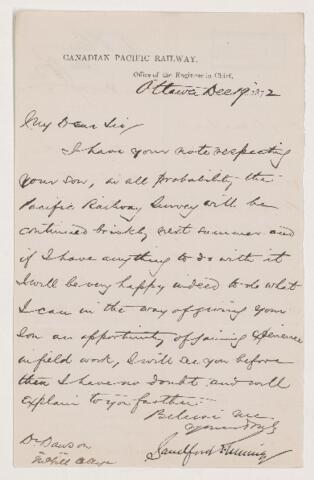 CANADIAN PACIFIC RAILWAY.
Office of the Engineer in Chief,
Ottawa Dec 19 1872
My Dear Sir
I have your note respecting
your son, in all probability the
Pacific Railway Survey will be
continued briskly next summer and
if I have anything to do with it
I will be very happy indeed to do what
I can in the way of giving your
Son an opportunity of gaining experience
in field work, I will see you before
then I have no doubt and will
explain to you farther.
Believe me
Yours truly
Sandford Fleming
Dr Dawson
McGill College